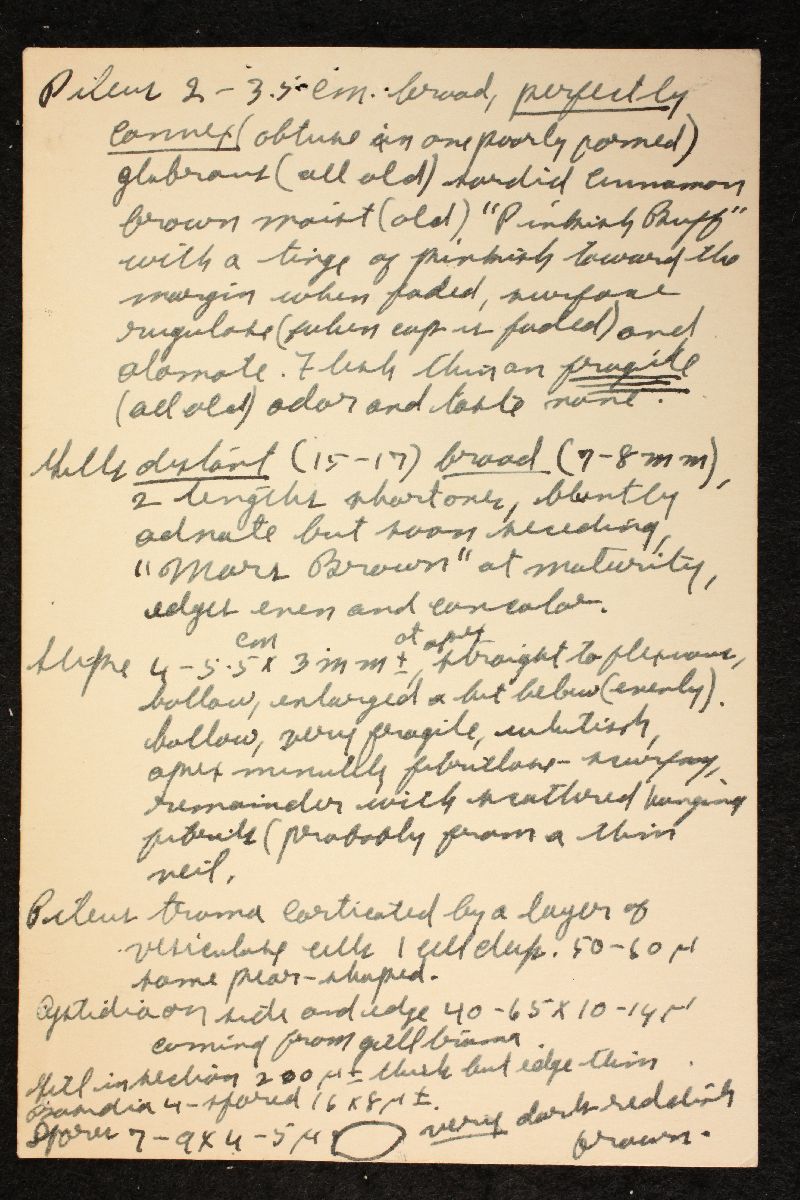 Pileus 2 - 3.5 cm. broad, perfectly
convex (obtuse in one poorly formed)
glabrous (all old) sordid cinnamon
brown moist (old) "Pinkish Buff"
with a tinge of pinkish toward the
margin when faded, surface
rugulose (when cap is faded) and
atomate. Flesh thin an fragile
(all old) odor and taste none.
Gills distant (15-17) broad (7-8 mm),
2 lengths short ones, bluntly
adnate but soon seceding,
"Mars Brown" at maturity,
edges even and concolor.
Stipe 4 - 5.5 cm x 3 mm ± at apex, straight to flexuous,
hollow, enlarged a bit below (evenly).
hollow, very fragile, whitish,
apex minutely fibrillose-scurfy,
remainder with scattered hanging
fibrils (probably from a thin
veil.
Pileus trama corticated by a layer of
vesiculose cells 1 cell deep. 50-60 µ
some pear-shaped.
Cystidia on side and edge 40-65 x 10-14 µ
coming from gill trama.
Gill in section 200 µ ± thick but edge thin.
Basidia 4-spored 16 x 8 µ ±.
Spores 7-9 x 4-5 µ very dark reddish
brown.